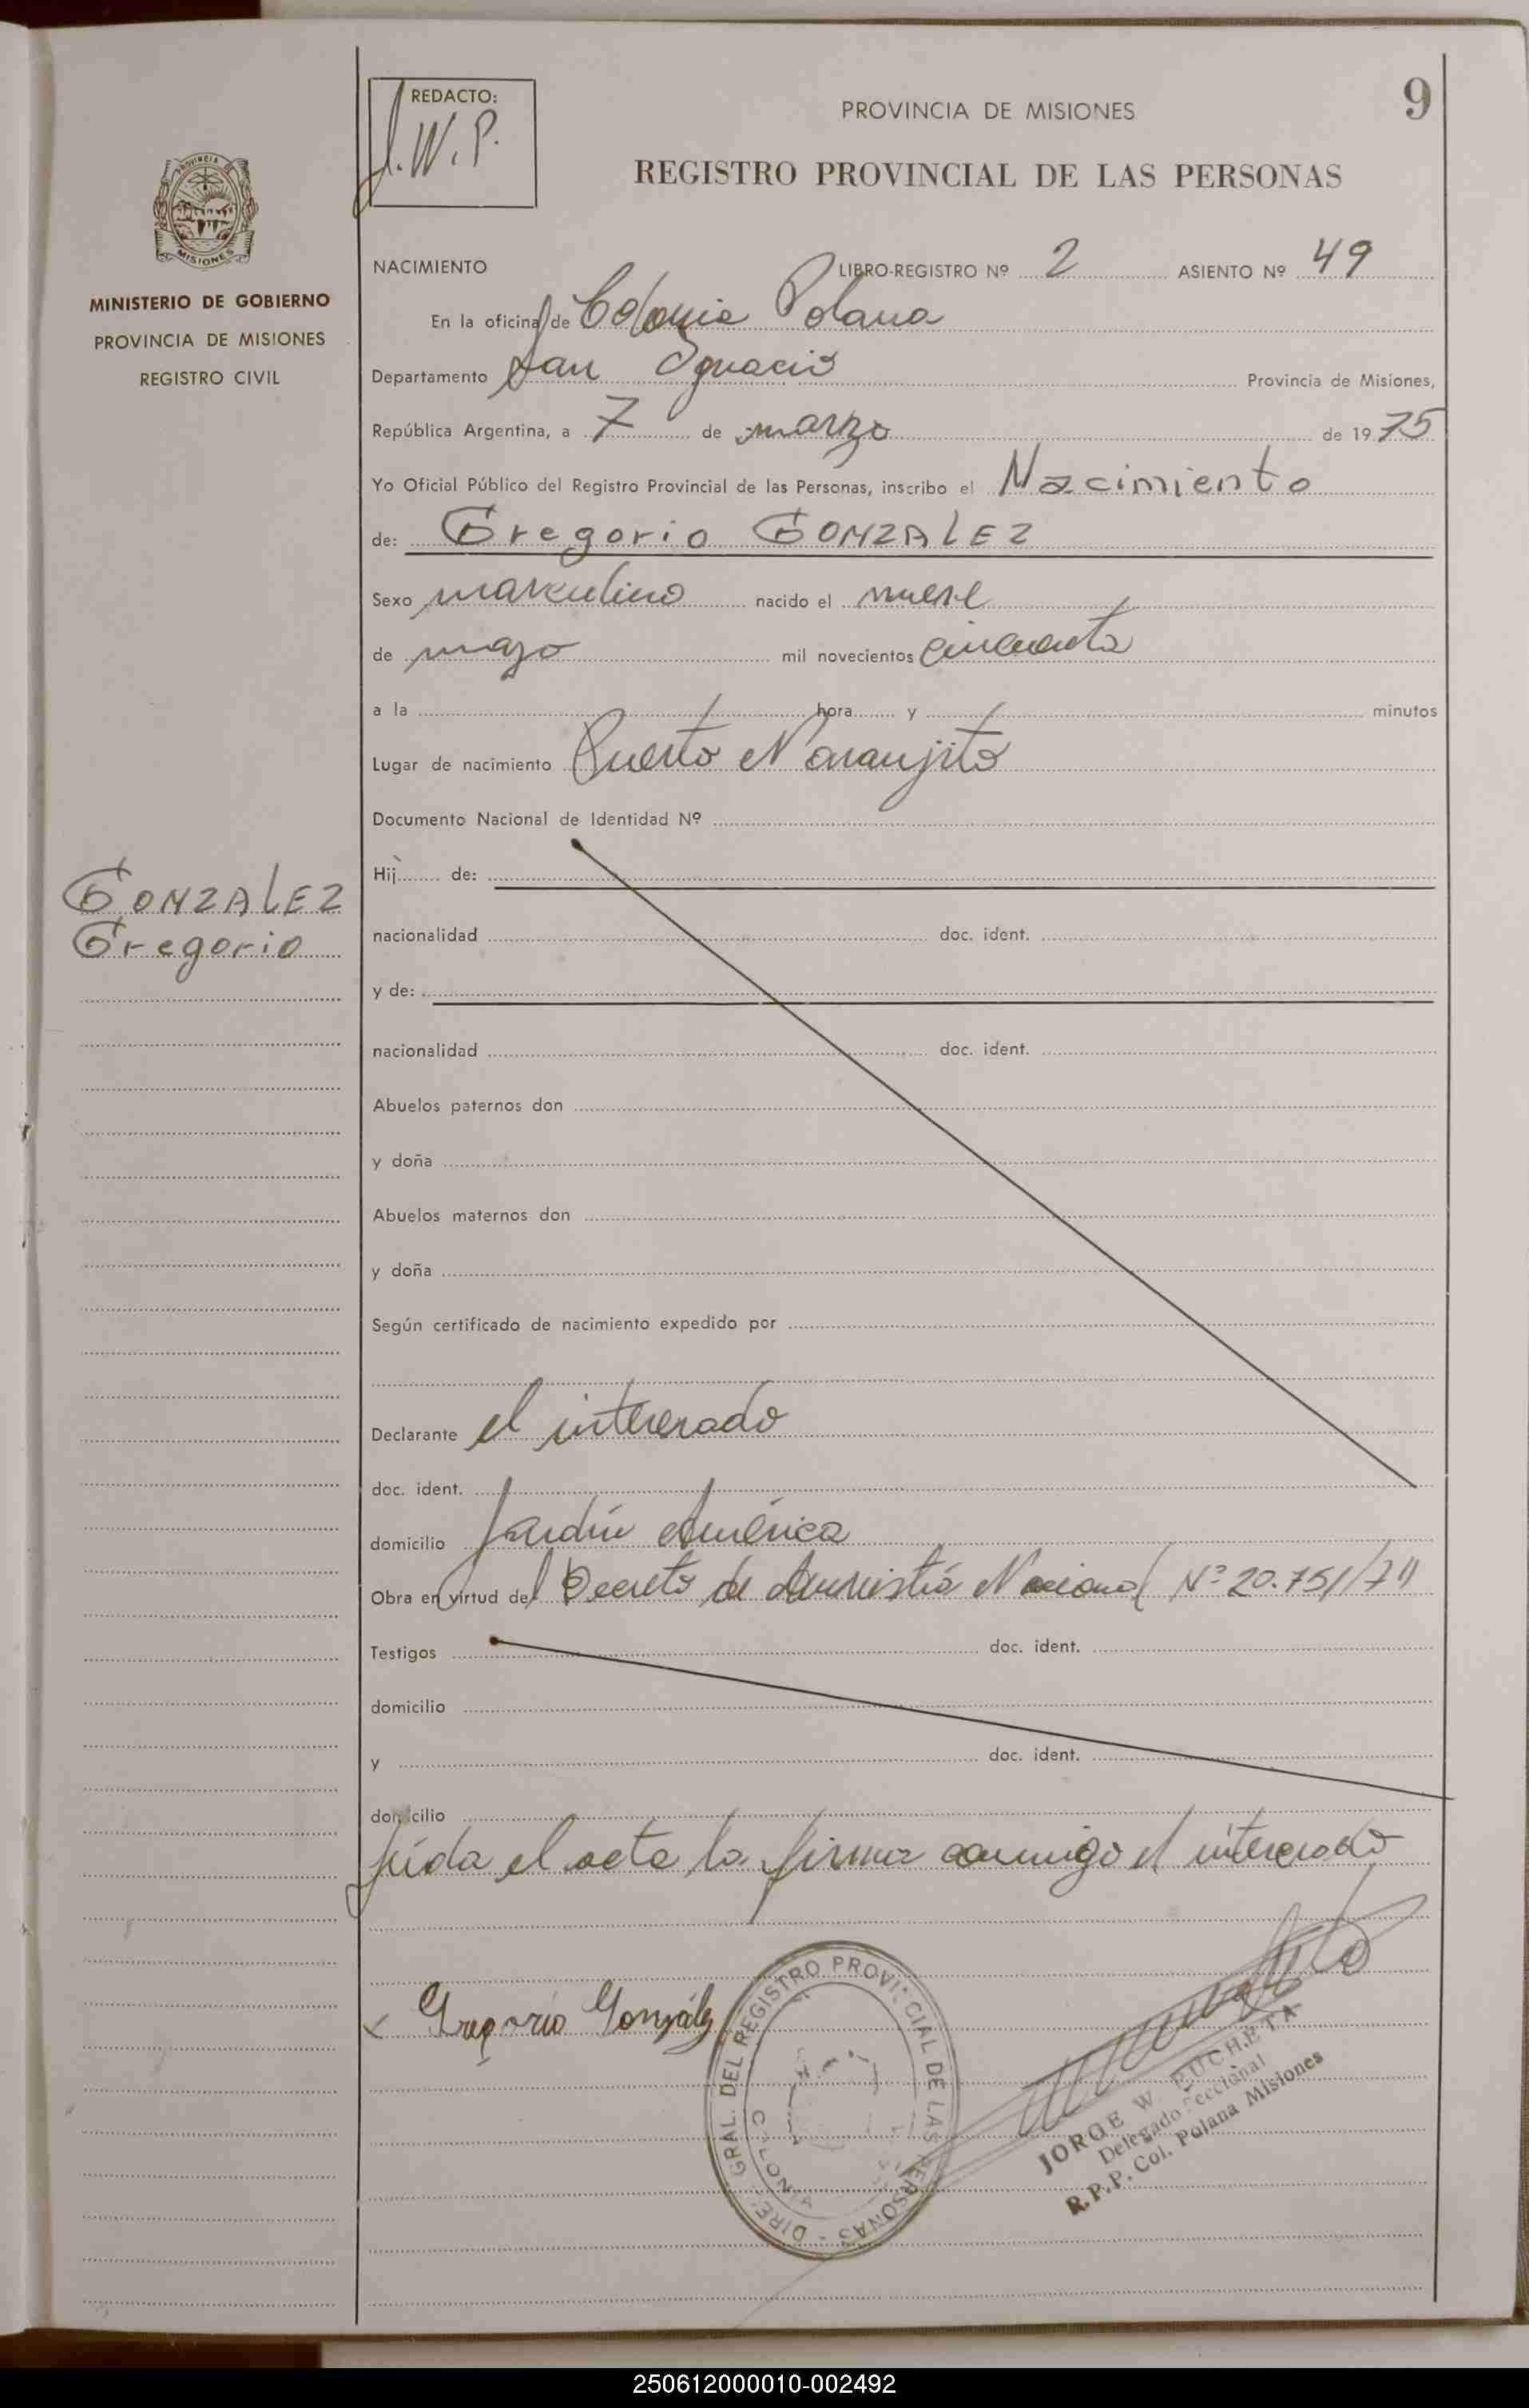 9
REDACTO:
J.W.P.
PROVINCIA DE MISIONES
REGISTRO PROVINCIAL DE LAS PERSONAS
PROVINCIA
MISIONES
MINISTERIO DE GOBIERNO
PROVINCIA DE MISIONES
REGISTRO CIVIL
NACIMIENTO LIBRO-REGISTRO Nº 2 ASIENTO Nº 49
En la oficina de Colonia Polana
Departamento San Ignacio Provincia de Misiones,
República Argentina, a 7 de marzo de 1975
Yo Oficial Público del Registro Provincial de las Personas, inscribo el Nacimiento
de: Gregorio GONZALEZ
Sexo masculino nacido el nueve
de mayo mil novecientos cincuenta
a la hora y minutos
Lugar de nacimiento Puerto Naranjito
Documento Nacional de Identidad Nº
Hij de:
GONZALEZ
Gregorio
nacionalidad doc. ident.
y de:
nacionalidad doc. ident.
Abuelos paternos don
y doña
Abuelos maternos don
y doña
Según certificado de nacimiento expedido por
Declarante el interesado
doc. ident.
domicilio Jardín América
Obra en virtud del Decreto de Amnistía Nacional Nº 20.751/74
Testigos doc. ident.
domicilio
y doc. ident.
domicilio
Leída el acta la firma conmigo el interesado
x Gregorio González
DIREC. GRAL. DEL REGISTRO PROVINCIAL DE LAS PERSONAS -
COLONIA
JORGE W. PUCHETA
Delegado Seccional
R.P.P. Col. Polana Misiones
250612000010-002492